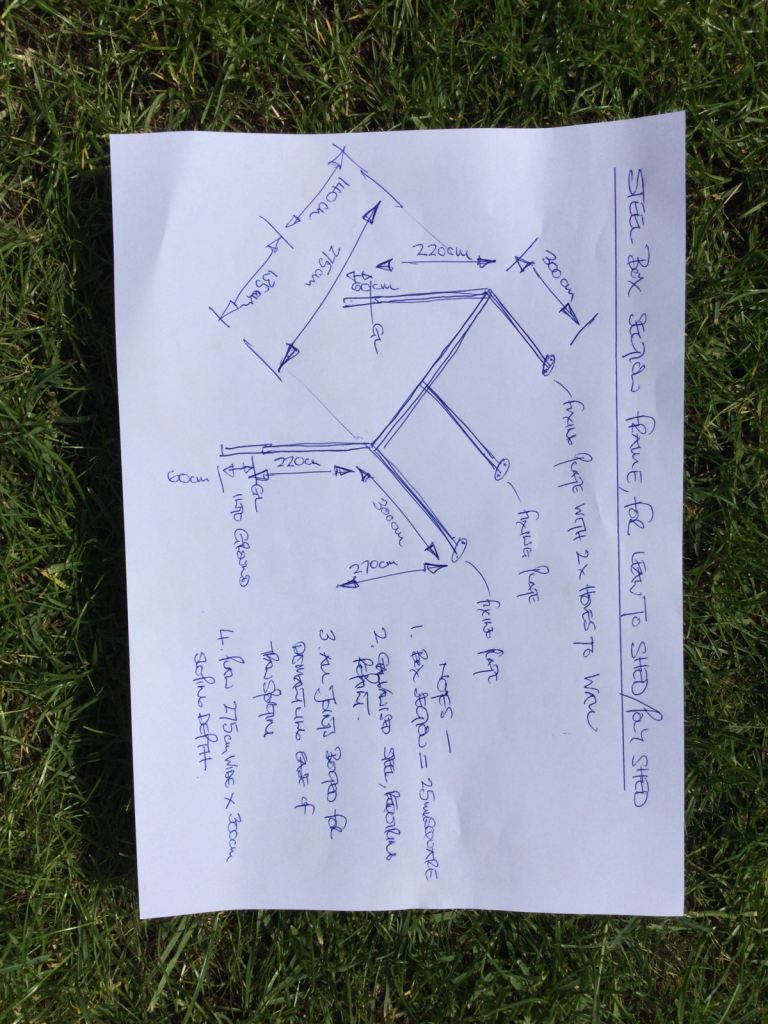 STEEL BOX SECTION FRAME, FOR LEAN TO SHED/POLY SHED
FIXING PLATE WITH 2x HOLES TO WALL
FIXING PLATE
FIXING PLATE
300cm
220cm
60cm
GL
275cm
140cm
135cm
220cm
300cm
270cm
GL
60cm
INTO GROUND
NOTES —
1. BOX SECTION = 25mm SQUARE
2. GALVANISED STEEL, REQUIRING
REPAINT.
3. ALL JOINTS BOLTED FOR
DISMANTLING EASE OF
TRANSPORTING
4. 275cm WIDE x 300cm
SLOPING DEPTH.